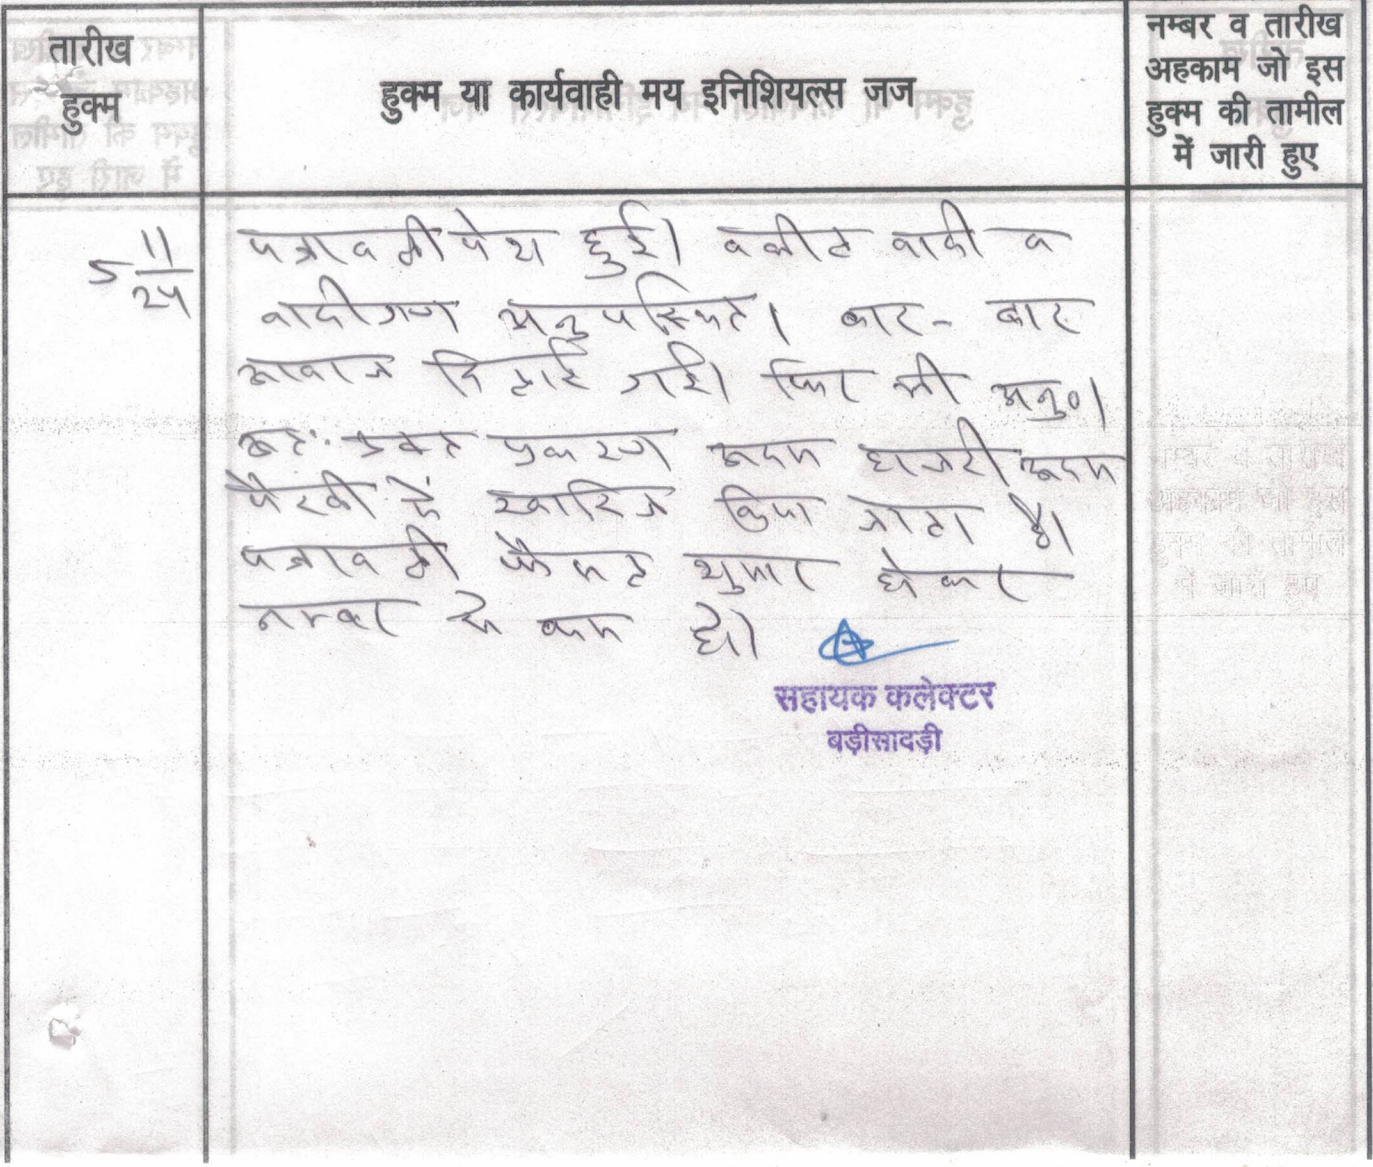 तारीख
हुक्म
हुक्म या कार्यवाही मय इनिशियल्स जज
नम्बर व तारीख
अहकाम जो इस
हुक्म की तामील
में जारी हुए
5 11/24
पत्रावली पेश हुई। वकील वादी व
वादीगण अनुपस्थित। बार - बार
आवाज दिलाई गई। फिर भी अनु०।
अतः प्रकरण अदम हाजरी अदम
पैरवी में खारिज किया जाता है।
पत्रावली फैसल शुमार होकर
नम्बर से कम हो।
सहायक कलेक्टर
बड़ीसादड़ी